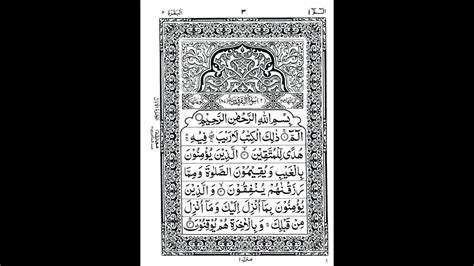 البقرة ٢
٣
الٓمّٓ ١
بِسْمِ اللّٰهِ الرَّحْمٰنِ الرَّحِیْمِ
الٓمّٓ ۚ ذٰلِكَ الْكِتٰبُ لَا رَیْبَ ۛ فِیْهِ ۛ
هُدًى لِّلْمُتَّقِیْنَ ۙ الَّذِیْنَ یُؤْمِنُوْنَ
بِالْغَیْبِ وَ یُقِیْمُوْنَ الصَّلٰوةَ وَ مِمَّا
رَزَقْنٰهُمْ یُنْفِقُوْنَ ۙ وَ الَّذِیْنَ
یُؤْمِنُوْنَ بِمَاۤ اُنْزِلَ اِلَیْكَ وَ مَاۤ اُنْزِلَ
مِنْ قَبْلِكَ ۚ وَ بِالْاٰخِرَةِ هُمْ یُوْقِنُوْنَ ؕ